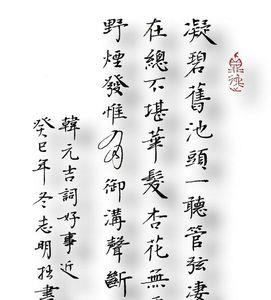 凝碧舊池頭一聽管弦淒
在總不堪華髮杏花無
野煙發惟有御溝聲斷
韓元吉詞好事近
癸巳年冬志明拙書